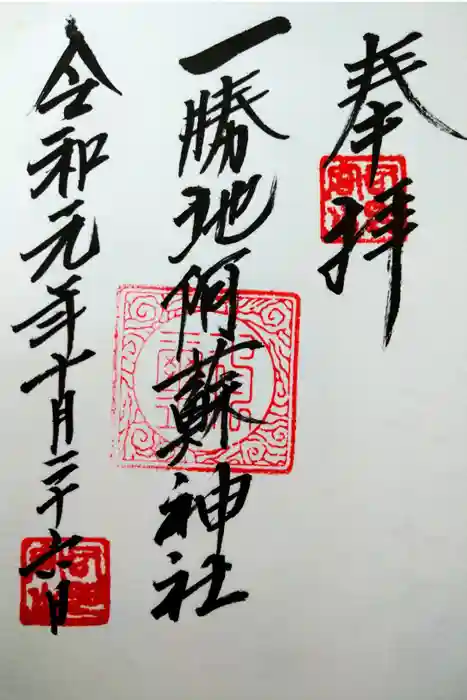 奉拝
一勝地阿蘇神社
令和元年十月二十六日